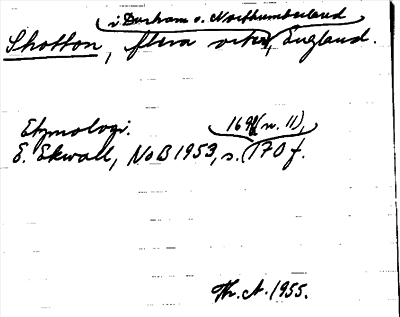 i Durham o. Northumberland
Shotton, flera orter, England.
Etymologi.
169 (n. 11),
E. Ekwall, NoB 1953, s. 170 f.
Th. A. 1955.